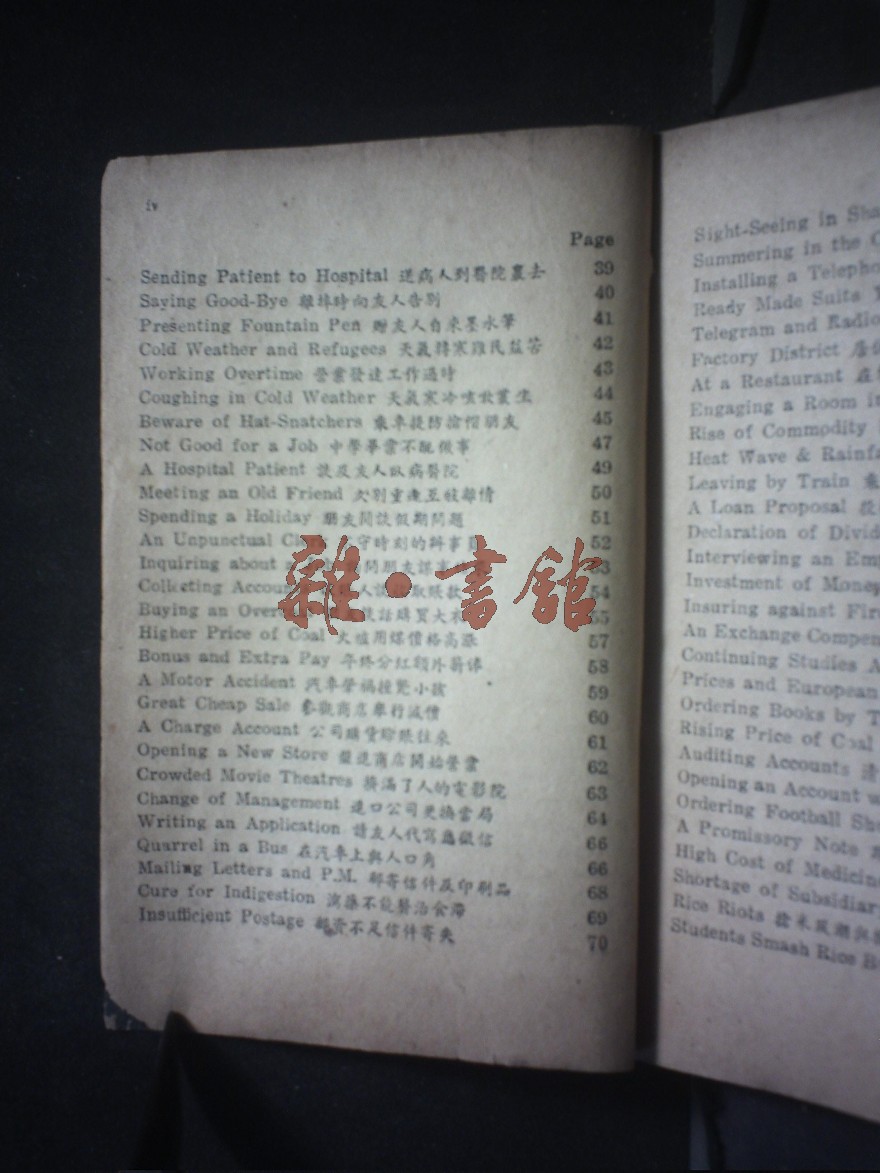 iv
Page
Sending Patient to Hospital 送病人到醫院裏去 39
Saying Good-Bye 離埠時向友人告別 40
Presenting Fountain Pen 贈友人自來墨水筆 41
Cold Weather and Refugees 天氣轉寒難民益苦 42
Working Overtime 營業發達工作過時 43
Coughing in Cold Weather 天氣寒冷咳嗽叢生 44
Beware of Hat-Snatchers 乘車提防搶帽朋友 45
Not Good for a Job 中學畢業不能做事 47
A Hospital Patient 談及友人臥病醫院 49
Meeting an Old Friend 久別重逢互敍離情 50
Spending a Holiday 朋友間談假期問題 51
An Unpunctual 守時刻的辦事員 52
Inquiring about 問朋友謀
Collecting 人談 取賬款 54
Buying an 談話購買大 55
Higher Price of Coal 火爐用煤價格高漲 57
Bonus and Extra Pay 年終分紅額外薪俸 58
A Motor Accident 汽車肇禍撞斃小孩 59
Great Cheap Sale 參觀商店舉行減價 60
A Charge Account 公司購貨賒賬往來 61
Opening a New Store 盤進商店開始營業 62
Crowded Movie Theatres 擠滿了人的電影院 63
Change of Management 進口公司更換當局 64
Writing an Application 請友人代寫應徵信 66
Quarrel in a Bus 在汽車上與人口角 66
Mailing Letters and P.M. 郵寄信件及印刷品 68
Cure for Indigestion 瀉藥不能醫治食滯 69
Insufficient Postage 郵資不足信件寄失 70
雜·書館
Sight-Seeing in
Summering in the
Installing a
Ready Made Suits
Telegram and Radio
Factory District
At a Restaurant
Engaging a Room
Rise of Commodity
Heat Wave &
Leaving by Train 乘
A Loan Proposal
Declaration of
Interviewing an
Investment of Money
Insuring against
An Exchange
Continuing Studies
Prices and European
Ordering Books by
Rising Price of Coal
Auditing Accounts 清
Opening an Account
Ordering Football
A Promissory Note
High Cost of
Shortage of
Rice Riots 搶米風潮
Students Smash Rice